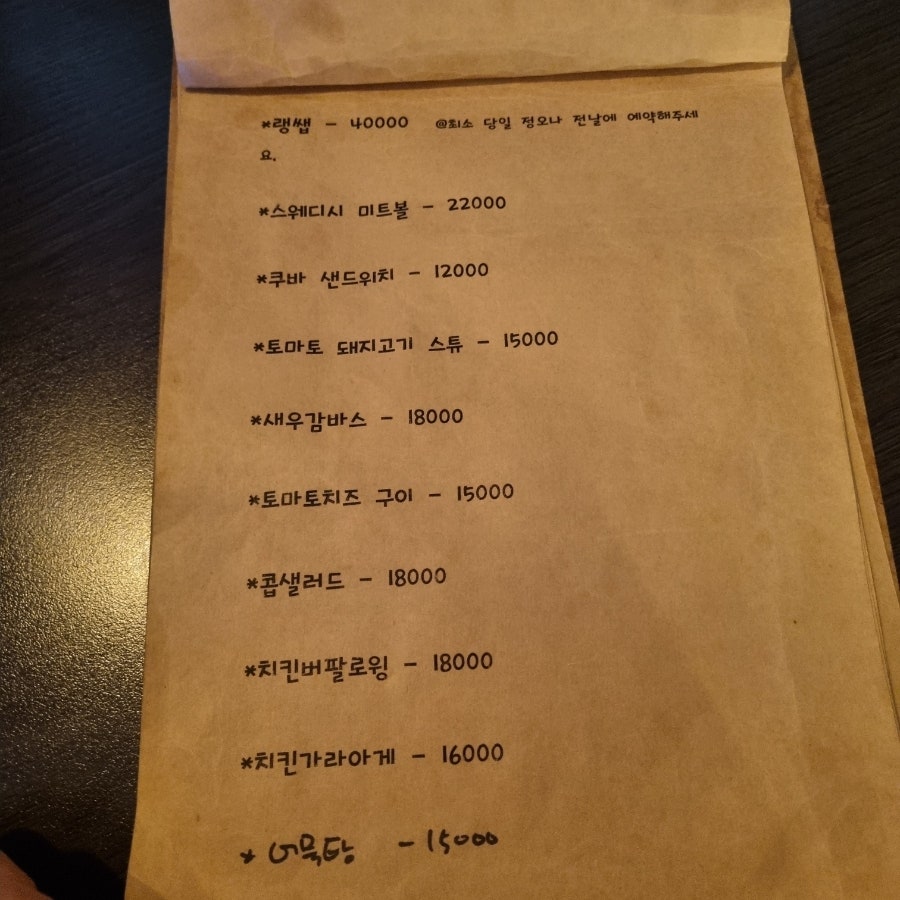 *랭쌥 - 40000 @최소 당일 정오나 전날에 예약해주세
요.
*스웨디시 미트볼 - 22000
*쿠바 샌드위치 - 12000
*토마토 돼지고기 스튜 - 15000
*새우감바스 - 18000
*토마토치즈 구이 - 15000
*콥샐러드 - 18000
*치킨버팔로윙 - 18000
*치킨가라아게 - 16000
* 어묵탕 - 15000